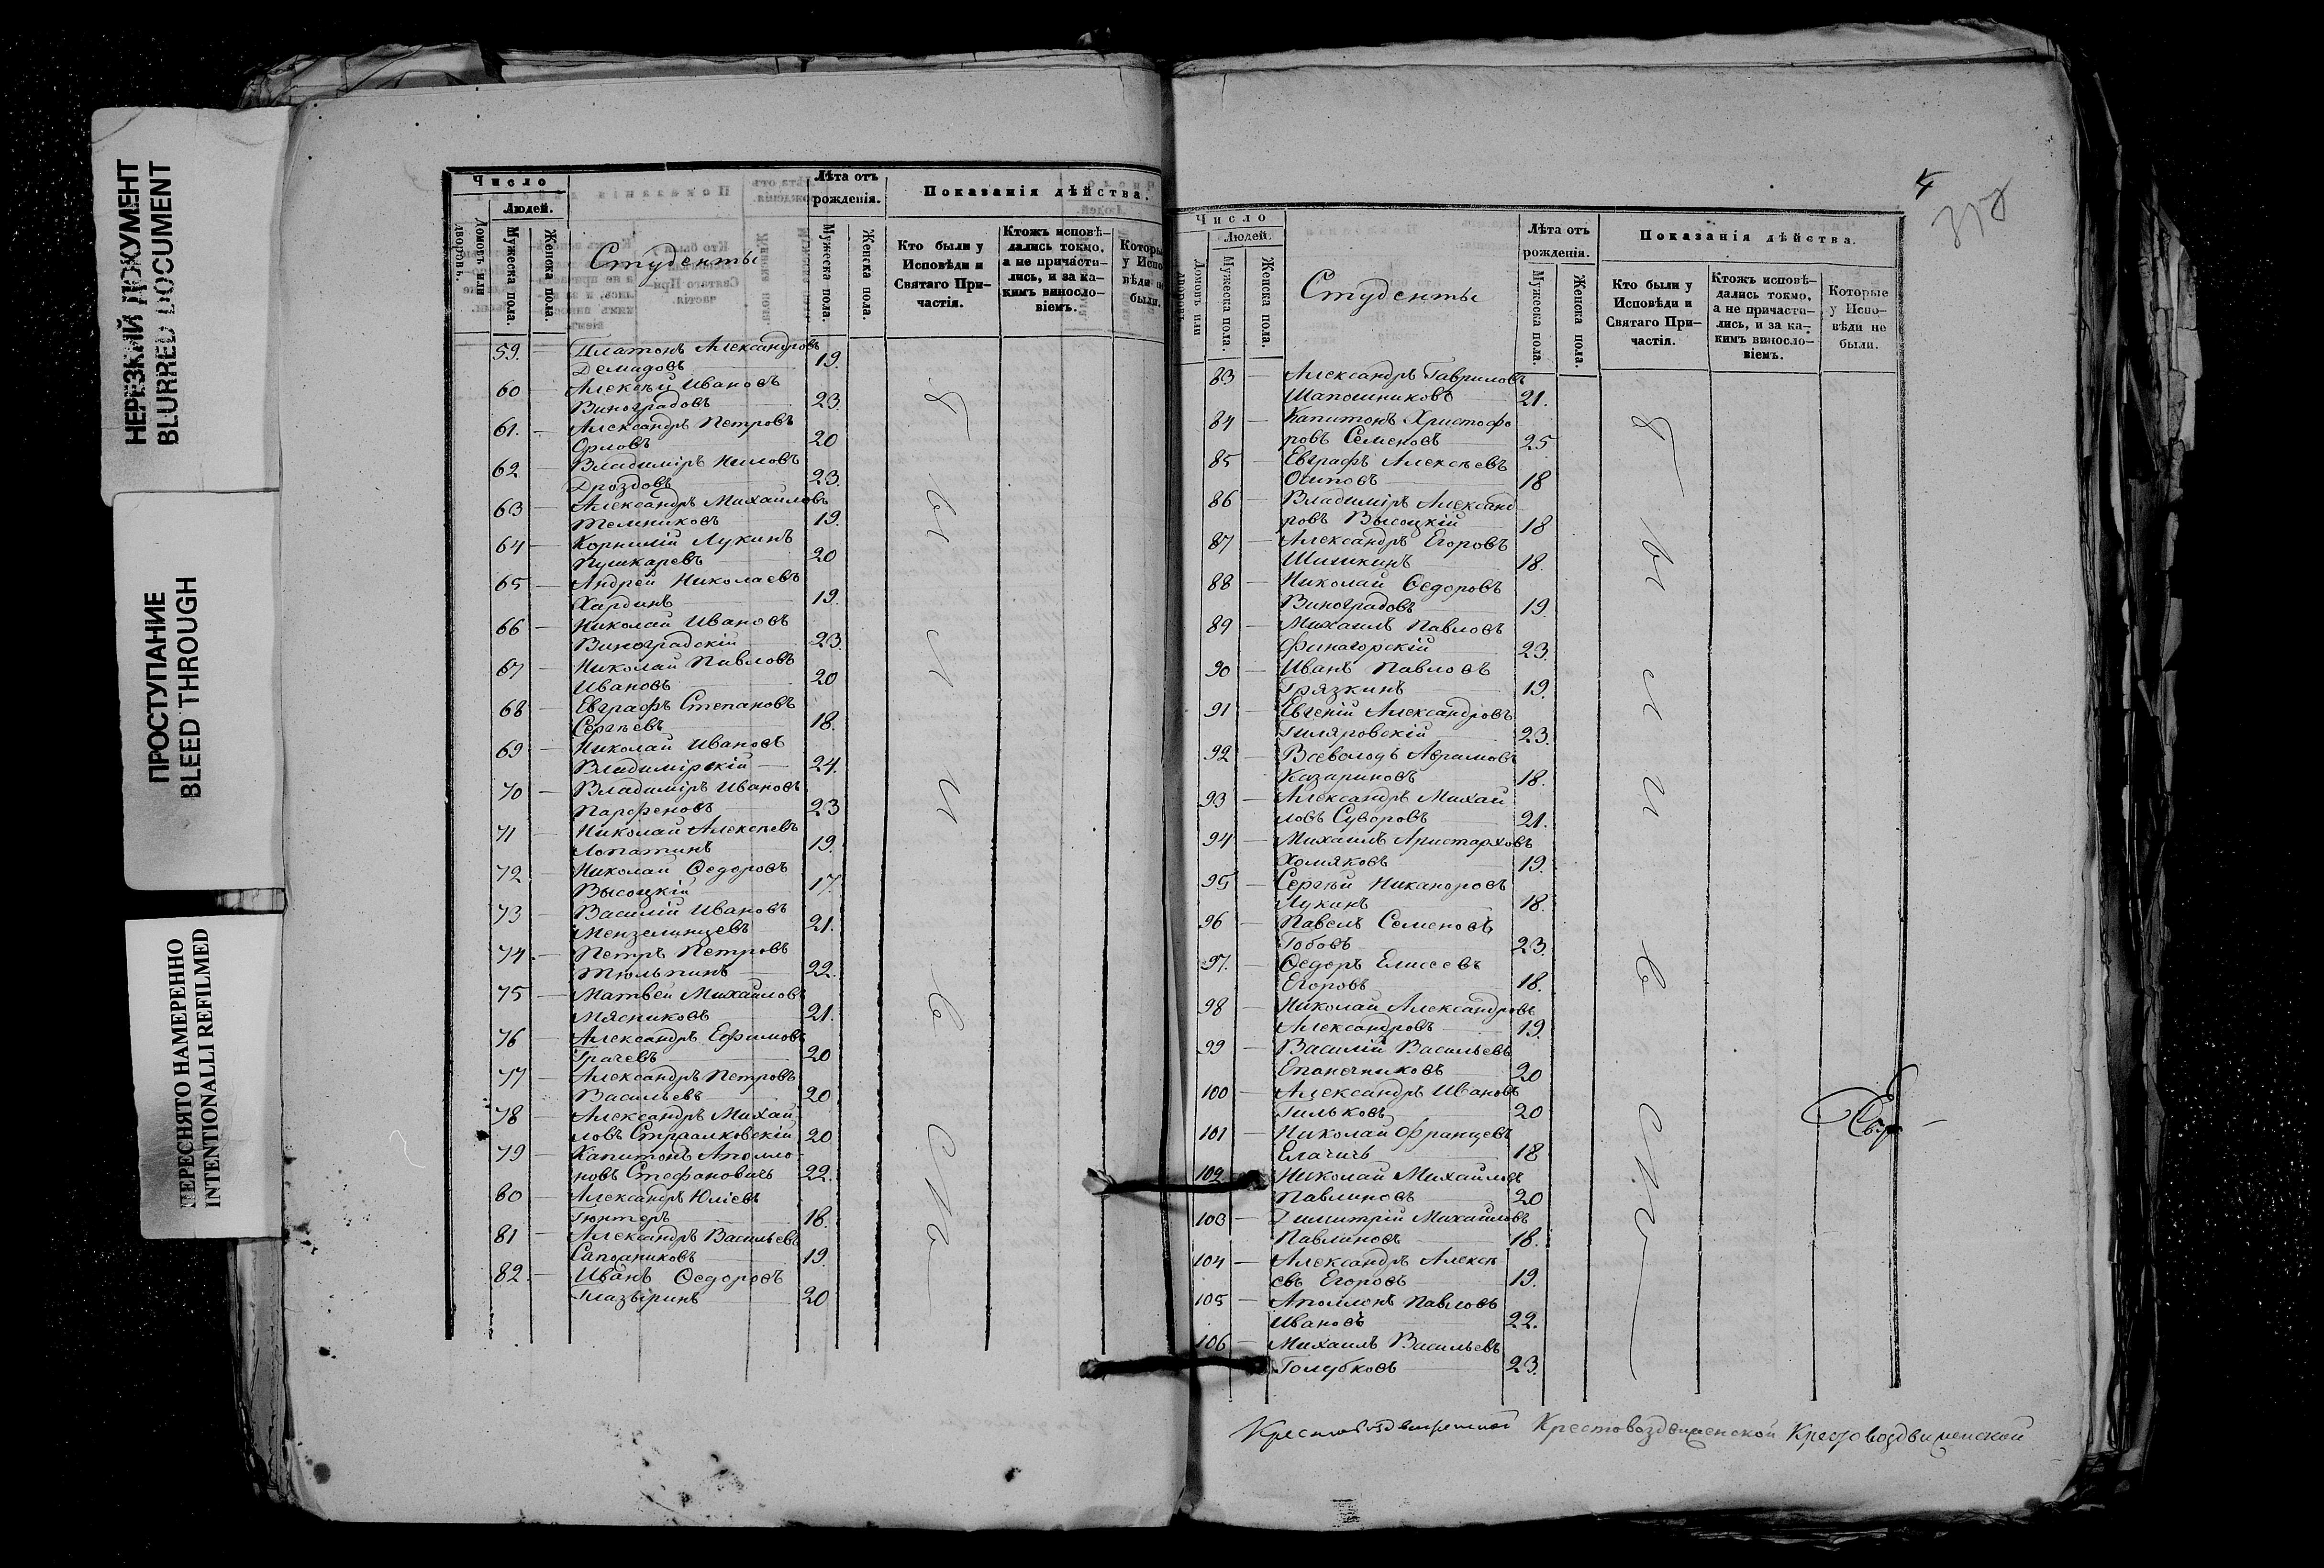 НЕРЕЗКИЙ ДОКУМЕНТ
BLURRED DOCUMENT
ПРОСТУПАНИЕ
BLEED THROUGH
ПЕРЕСНЯТО НАМЕРЕННО
INTENTIONALLI REFILMED
Число
Людей.
Домовъ или дворовъ.
Мужеска пола.
Женска пола.
Студенты
Лѣта отъ рожденія.
Мужеска пола.
Женска пола.
Показанія дѣйства.
Кто были у Исповѣди и Святаго При-частія.
Ктожъ исповѣ-дались токмо, а не причасти-лись, и за ка-кимъ винosло-віемъ.
Которы у Испо вѣди не были.
59. — Платонъ Александровъ
Демидовъ 19.
60 — Алексѣй Ивановъ
Виноградовъ 23.
61. — Александръ Петровъ
Орловъ 20
62 — Владиміръ Ниловъ
Дроздовъ 23.
63 — Александръ Михайловъ
Темниковъ 19.
64 — Корнилій Лукинъ
Пушкаревъ 20
65 — Андрей Николаевъ
Хардинъ 19.
66 — Николай Ивановъ
Виноградскій 23.
67 — Николай Павловъ
Ивановъ 20
68 — Евграфъ Степановъ
Сергѣевъ 18.
69 — Николай Ивановъ
Владимірскій 24.
70 — Владиміръ Ивановъ
Парфеновъ 23
71 — Николай Алексѣевъ
Лопатинъ 19.
72 — Николай Ѳедоровъ
Высоцкій 17.
73 — Василій Ивановъ
Мензелинцевъ 21.
74. — Петръ Петровъ
Тюльпинъ 22.
75 — Матвей Михайловъ
Мясниковъ 21.
76 — Александръ Ефимовъ
Грачевъ 20
77 — Александръ Петровъ
Васильевъ 20
78 — Александръ Михай
ловъ 20
79 — Капитонъ Аполло
новъ Стефановичь 22.
80 — Александръ Юліевъ
Гюнтеръ 18.
81 — Александръ Васильевъ
Сапожниковъ 19.
82. — Иванъ Ѳедоровъ
Глазыринъ 20
б
ы
л
и
в
с
ѣ
4
Число
Людей.
Домовъ или дворовъ.
Мужеска пола.
Женска пола.
Студенты
Лѣта отъ рожденія.
Мужеска пола.
Женска пола.
Показанія дѣйства.
Кто были у Исповѣди и Святаго При-частія.
Ктожъ исповѣ-дались токмо, а не причасти-лись, и за ка-кимъ винosло-віемъ.
Которые у Испо-вѣди не были.
83 — Александръ Гавриловъ
Шапошниковъ 21.
84 — Капитонъ Христофо
ровъ Семеновъ 25.
85 — Евграфъ Алексѣевъ
Осиповъ 18
86 — Владиміръ Александ
ровъ Высоцкій 18
87 — Александръ Егоровъ
Шишкинъ 18.
88 — Николай Ѳедоровъ
Виноградовъ 19.
89 — Михаилъ Павловъ
Финагорскій 23.
90 — Иванъ Павловъ
Грязкинъ 19.
91 — Евгеній Александровъ
Гиляровскій 23.
92 — Всеволодъ Абрамовъ
Казариновъ 18.
93 — Александръ Михай
ловъ Суворовъ 21.
94 — Михаилъ Аристарховъ
Хомяковъ 19.
95 — Сергѣй Никаноровъ
Лукинъ 18.
96 — Павелъ Семеновъ
Гобовъ 23.
97. — Ѳедоръ Елисеевъ
Егоровъ 18.
98 — Николай Александровъ
Александровъ 19.
99 — Василій Васильевъ
Епанечниковъ 20
100 — Александръ Ивановъ
Гильковъ 20
101 — Николай Францевъ
Елачичь 18
102. Николай Михайловъ
Павлиновъ 20
103 — Димитрій Михайловъ
Павлиновъ 18.
104 — Александръ Алексѣ
евъ Егоровъ 19.
105 — Аполлонъ Павловъ
Ивановъ 22.
106 — Михаилъ Васильевъ
Голубковъ 23.
б
ы
л
и
в
с
ѣ
Крестовоздвиженской Крестовоздвиженской Крестовоздвиженской